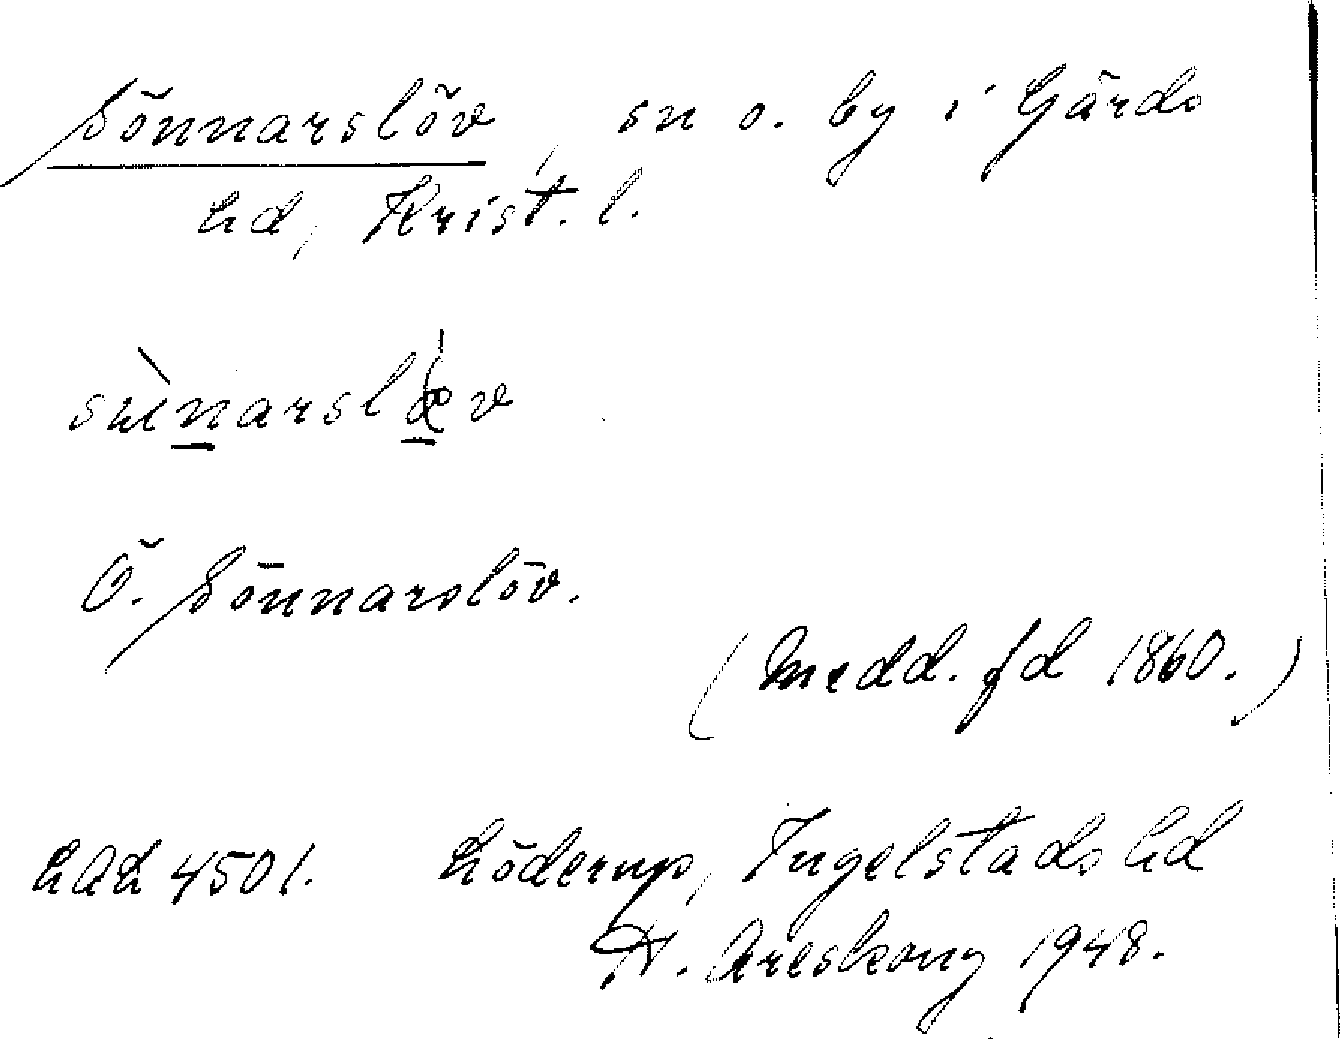 Sönnarslöv, sn o. by i Gärds
hd, Krist. l.
Ö. Sönnarslöv.
(Medd. fd 1860.)
LAL 4501. Löderup, Ingelstads hd
H. Areskoug 1948.